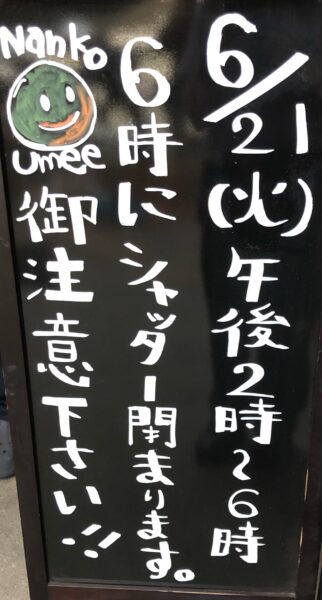 6/21(火)午後2時~6時
6時にシャッター閉まります。
Nanko
umee
御注意下さい!!